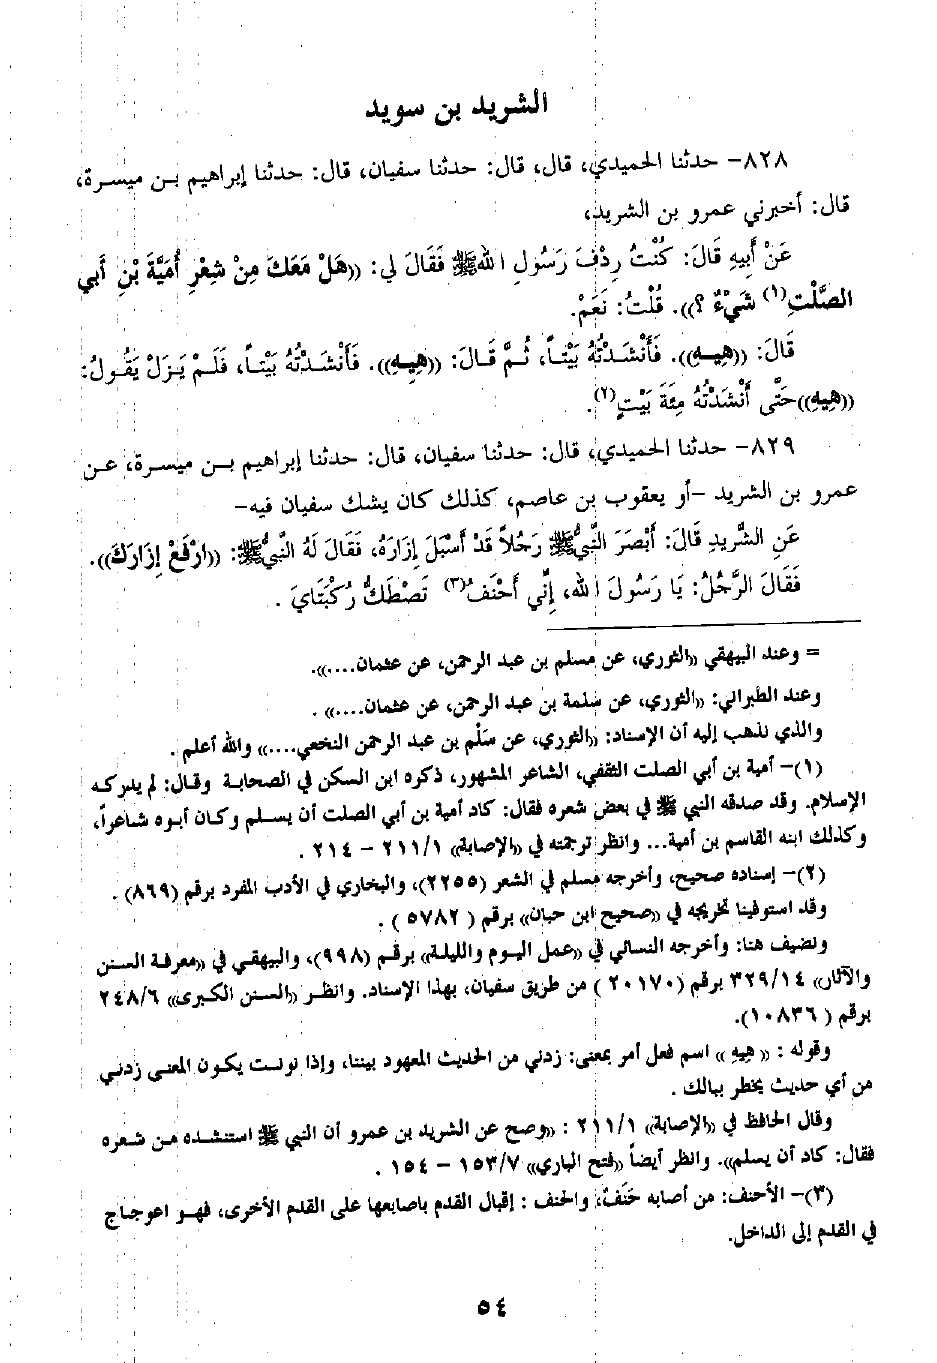 الشريد بن سويد
٨٢٨- حدثنا الحميدي، قال، قال: حدثنا سفيان، قال: حدثنا إبراهيم بن ميسرة،
قال: أخبرني عمرو بن الشريد،
عَنْ أَبِيهِ قَالَ: كُنْتُ رِدْفَ رَسُولِ اللهﷺ فَقَالَ لي: ((هَلْ مَعَكَ مِنْ شِعْرِ أُمَيَّةَ بْنِ أَبي
الصَّلْتِ(١) شَيْءٌ ؟)). قُلْتُ: نَعَمْ.
قَالَ: ((هِيهِ)). فَأَنْشَدْتُهُ بَيْتاً، ثُمَّ قَالَ: ((هِيهِ)). فَأَنْشَدْتُهُ بَيْتاً، فَلَمْ يَزَلْ يَقُولُ:
((هِيهِ))حَتَّى أَنْشَدْتُهُ مِئَةَ بَيْتٍ(٢).
٨٢٩- حدثنا الحميدي، قال: حدثنا سفيان، قال: حدثنا إبراهيم بن ميسرة، عن
عمرو بن الشريد -أو يعقوب بن عاصم، كذلك كان يشك سفيان فيه-
عَنِ الشَّرِيدِ قَالَ: أَبْصَرَ النَّبِيُّﷺ رَجُلاً قَدْ أَسْبَلَ إِزَارَهُ، فَقَالَ لَهُ النَّبِيُّﷺ: ((ارْفَعْ إِزَارَكَ)).
فَقَالَ الرَّجُلُ: يَا رَسُولَ الله، إِنِّي أَحْنَفُ(٣) تَصْطَكُّ رُكْبَتَايَ .
= وعند البيهقي «الثوري، عن مسلم بن عبد الرحمن، عن عثمان....».
وعند الطبراني: «الثوري، عن سلمة بن عبد الرحمن، عن عثمان....» .
والذي نذهب إليه أن الإسناد: «الثوري، عن سَلْم بن عبد الرحمن النخعي....» والله أعلم .
(١)- أمية بن أبي الصلت الثقفي، الشاعر المشهور، ذكره ابن السكن في الصحابة وقال: لم يدركه
الإسلام. وقد صدقه النبي ﷺ في بعض شعره فقال: كاد أمية بن أبي الصلت أن يسلم وكان أبوه شاعراً،
وكذلك ابنه القاسم بن أمية... وانظر ترجمته في «الإصابة» ٢١١/١ - ٢١٤ .
(٢)- إسناده صحيح، وأخرجه مسلم في الشعر (٢٢٥٥)، والبخاري في الأدب المفرد برقم (٨٦٩) .
وقد استوفينا تخريجه في «صحيح ابن حبان» برقم ( ٥٧٨٢ ) .
ونضيف هنا: وأخرجه النسائي في «عمل اليوم والليلة» برقم (٩٩٨)، والبيهقي في «معرفة السنن
والآثار» ٣٢٩/١٤ برقم (٢٠١٧٠ ) من طريق سفيان، بهذا الإسناد. وانظر «السنن الكبرى» ٢٤٨/٦
برقم (١٠٨٣٦ ).
وقوله : « هِيهِ » اسم فعل أمر بمعنى: زدني من الحديث المعهود بيننا، وإذا نونست يكون المعنى زدني
من أي حديث يخطر ببالك .
وقال الحافظ في «الإصابة» ٢١١/١ : «وصح عن الشريد بن عمرو أن النبي ﷺ استنشده من شعره
فقال: كاد أن يسلم». وانظر أيضاً «فتح الباري» ١٥٣/٧ - ١٥٤ .
(٣)- الأحنف: من أصابه حَنَفٌ، والحنف : إقبال القدم باصابعها على القدم الأخرى، فهو اعوجاج
في القدم إلى الداخل.
٥٤